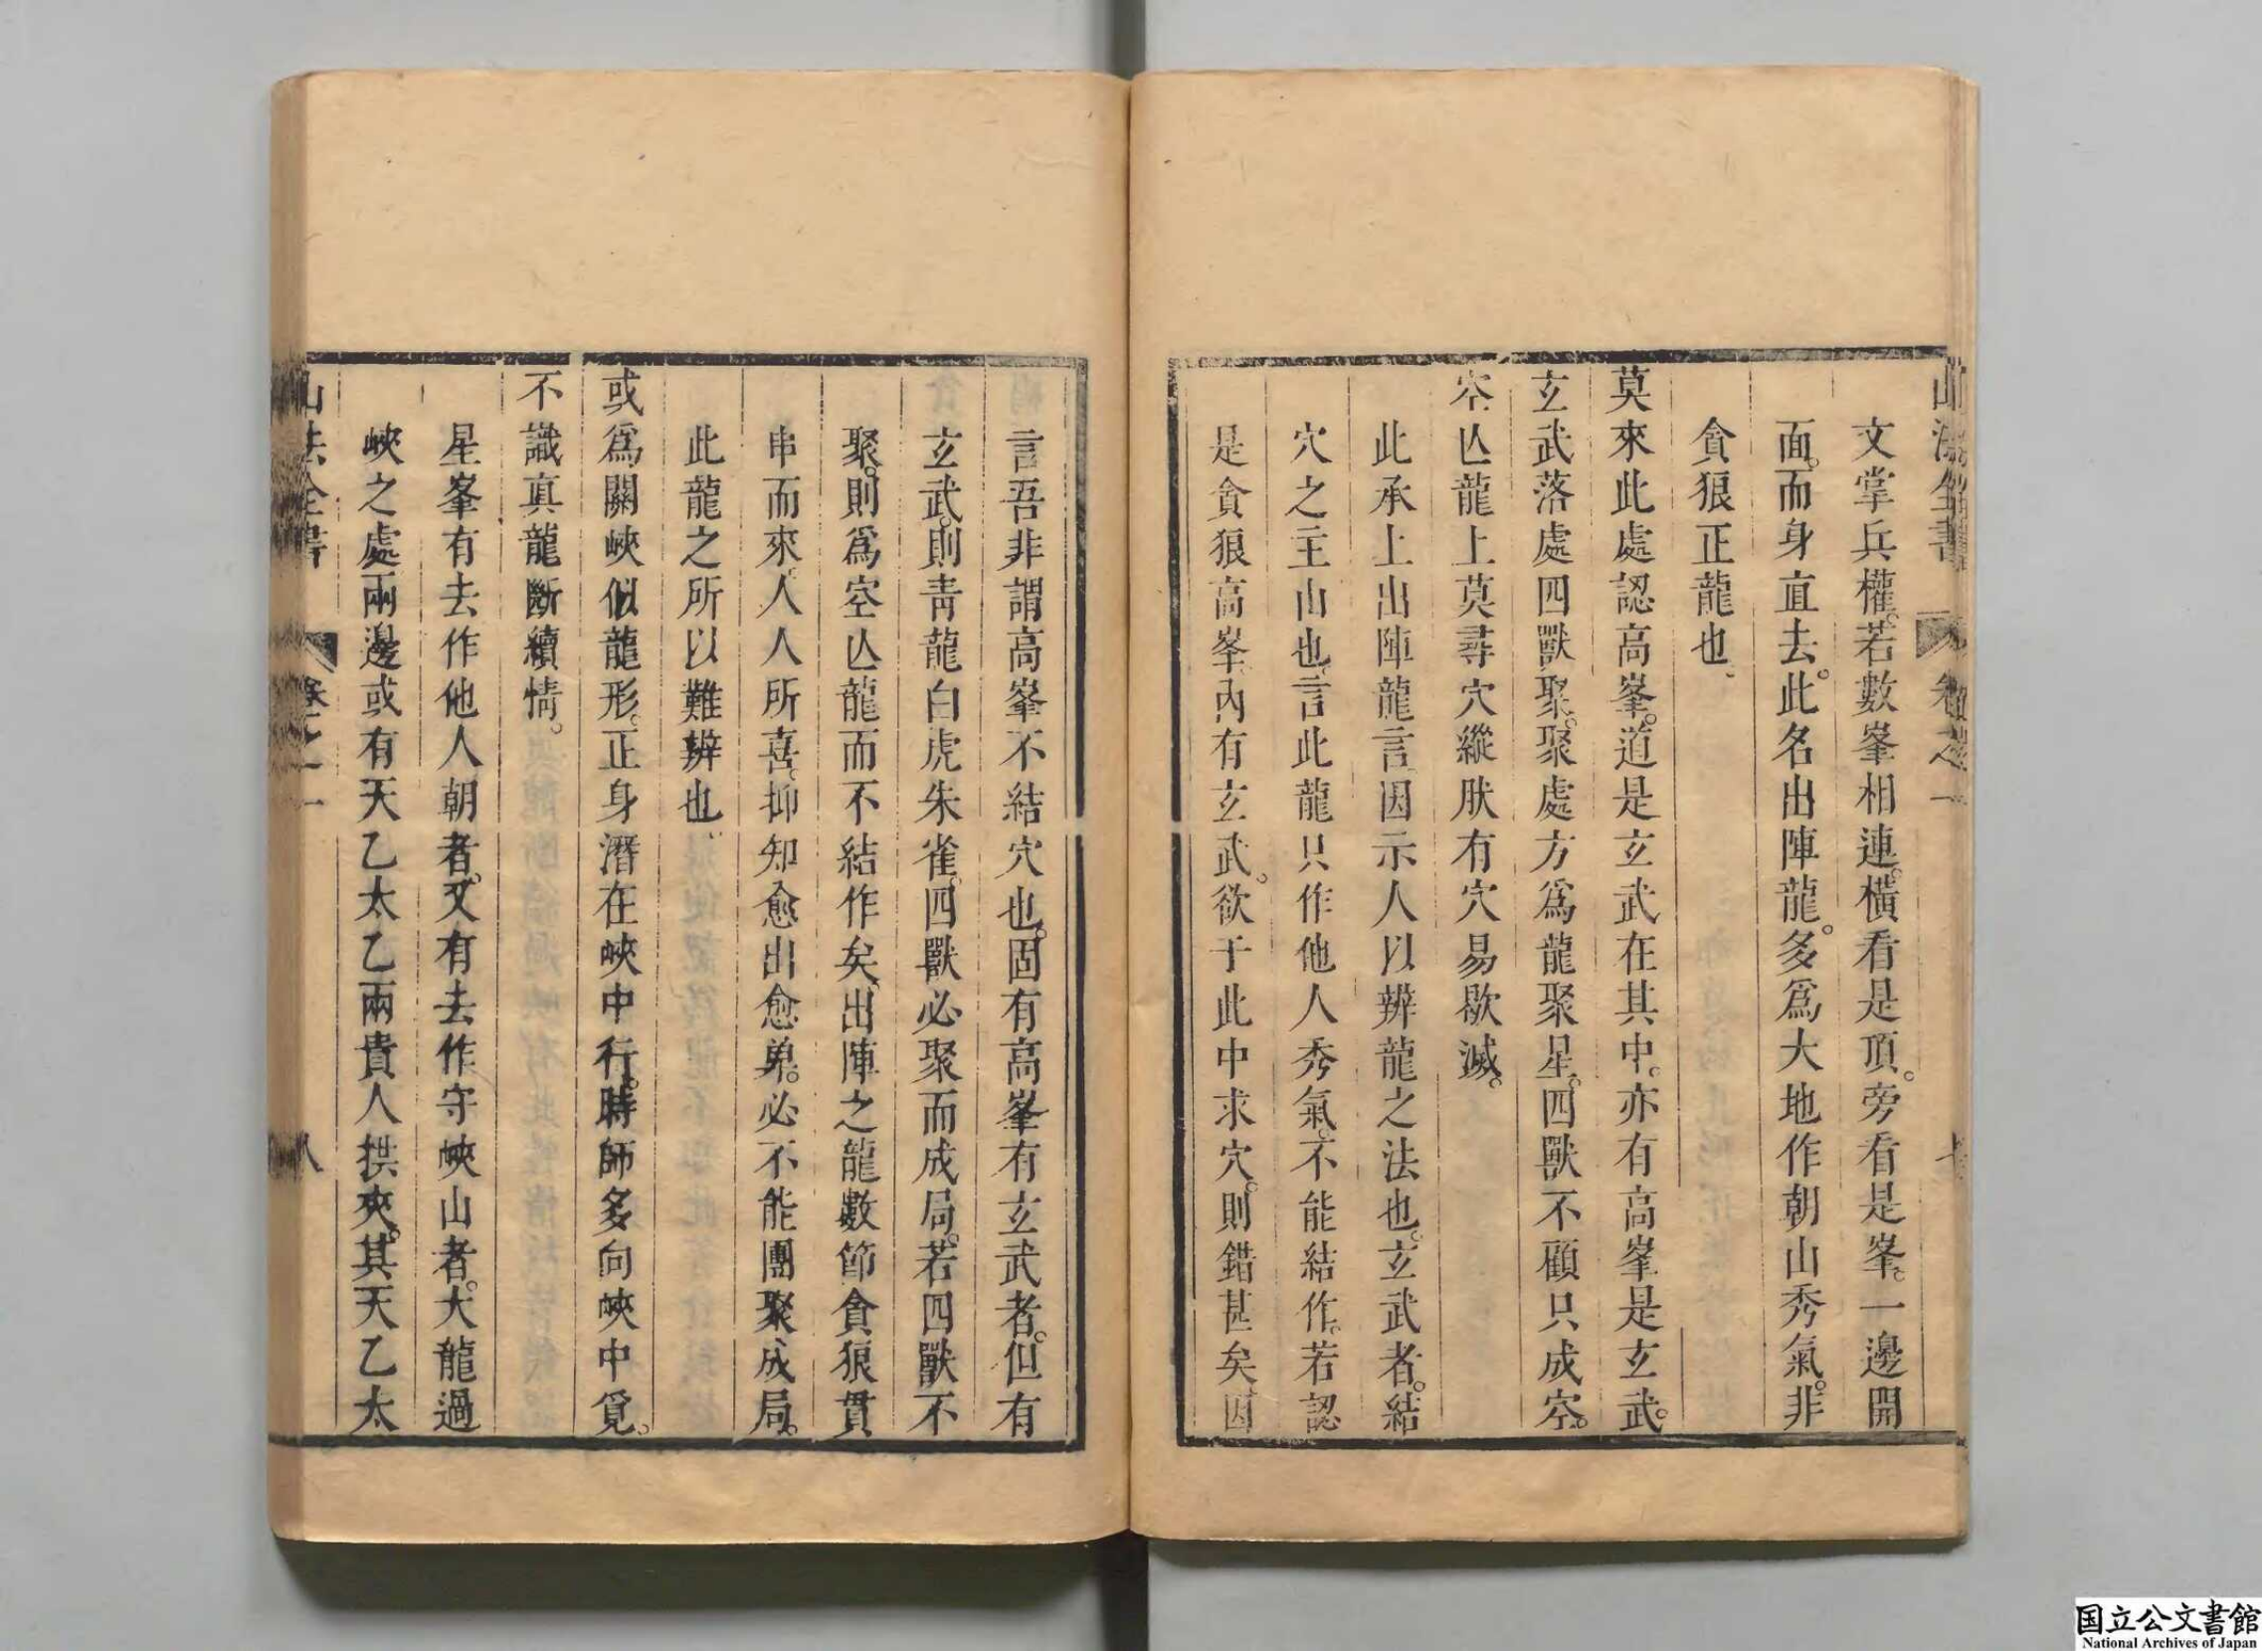 山法全書 卷之一 七
文掌兵權。若數峯相連。橫看是頂。旁看是峯。一邊開
面。而身直去。此名出陣龍。多爲大地作朝山秀氣。非
貪狼正龍也。
莫來此處認高峯。道是玄武在其中。亦有高峯是玄武。
玄武落處四獸聚。聚處方爲龍聚星。四獸不顧只成空。
空亾龍上莫尋穴縱肰有穴易歇滅。
此承上出陣龍言因示人以辨龍之法也。玄武者。結
穴之主山也。言此龍只作他人秀氣。不能結作。若認
是貪狼高峯。內有玄武。欲于此中求穴。則錯甚矣。因
言吾非謂高峯不結穴也。固有高峯有玄武者。但有
玄武。則靑龍白虎朱雀。四獸必聚而成局。若四獸不
聚。則爲空亾龍而不結作矣。出陣之龍數節貪狼貫
串而來。人人所喜。抑知愈出愈弟。必不能團聚成局。
此龍之所以難辨也。
或爲關峽似龍形。正身潛在峽中行。時師多向峽中覓。
不識眞龍斷續情。
星峯有去作他人朝者。又有去作守峽山者。大龍過
峽之處兩邊或有天乙太乙兩貴人拱夾。其天乙太
山法全書 卷之一 八
国立公文書館
National Archives of Japan